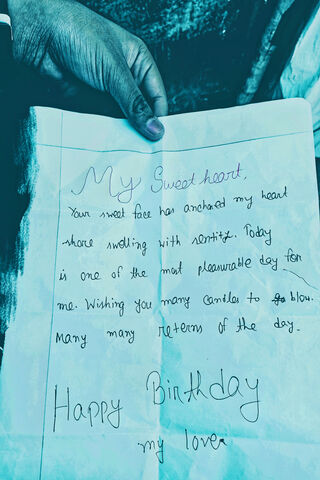 My Sweet heart,
Your sweet face has anchored my heart
shore swelling with sentity. Today
is one of the most pleasurable day for
me. Wishing you many candles to blow.
Many many reterns of the day.
Happy Birthday
my love